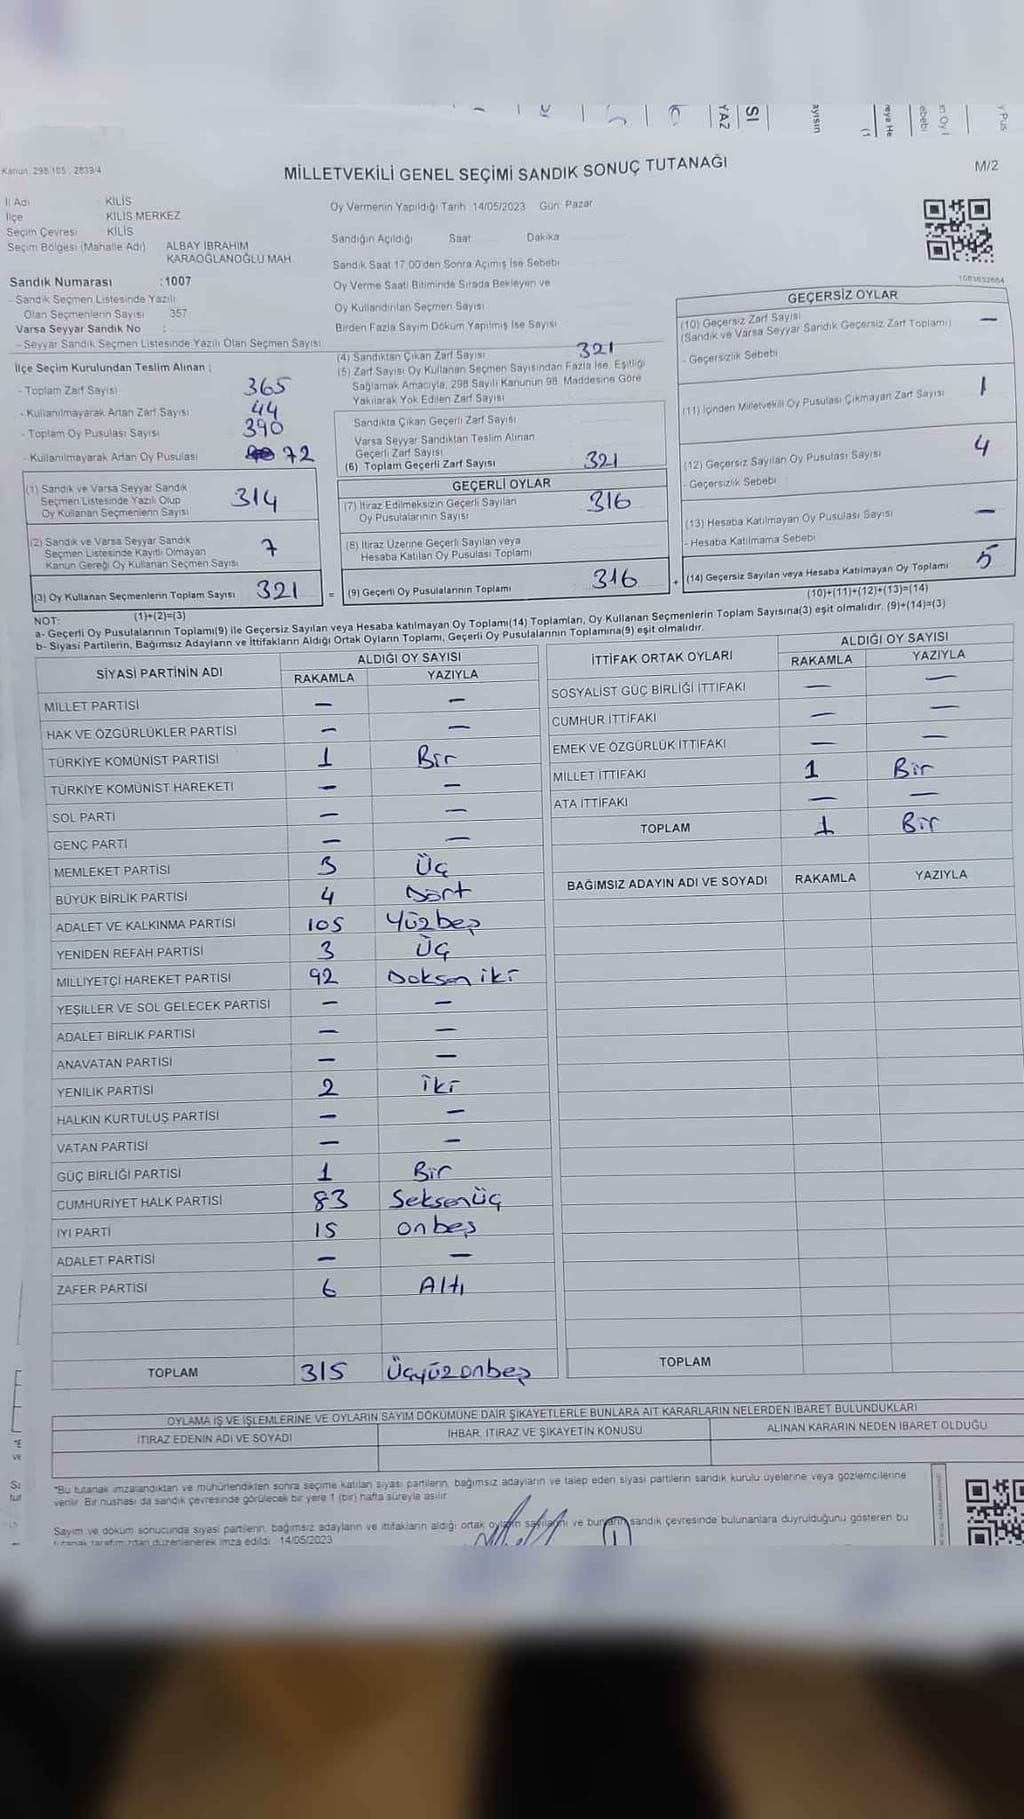 SI
YAZ
ayısın
Kanun: 298/105 , 2839/4
MİLLETVEKİLİ GENEL SEÇİMİ SANDIK SONUÇ TUTANAĞI
M/2
İl Adı : KİLİS
İlçe : KİLİS MERKEZ
Seçim Çevresi : KİLİS
Seçim Bölgesi (Mahalle Adı) : ALBAY İBRAHİM
KARAOĞLANOĞLU MAH.
Sandık Numarası : 1007
- Sandık Seçmen Listesinde Yazılı
Olan Seçmenlerin Sayısı : 357
Varsa Seyyar Sandık No :
- Seyyar Sandık Seçmen Listesinde Yazılı Olan Seçmen Sayısı
Oy Vermenin Yapıldığı Tarih :14/05/2023 Gün: Pazar
Sandığın Açıldığı Saat Dakika
Sandık Saat 17:00'den Sonra Açımış İse Sebebi
Oy Verme Saati Bitiminde Sırada Bekleyen ve
Oy Kullandırılan Seçmen Sayısı
Birden Fazla Sayım Döküm Yapılmış İse Sayısı
1083632664
İlçe Seçim Kurulundan Teslim Alınan :
- Toplam Zarf Sayısı 365
- Kullanılmayarak Artan Zarf Sayısı 44
- Toplam Oy Pusulası Sayısı 390
- Kullanılmayarak Artan Oy Pusulası 72
(1) Sandık ve Varsa Seyyar Sandık
Seçmen Listesinde Yazılı Olup
Oy Kullanan Seçmenlerin Sayısı 314
(2) Sandık ve Varsa Seyyar Sandık
Seçmen Listesinde Kayıtlı Olmayan
Kanun Gereği Oy Kullanan Seçmen Sayısı 7
(3) Oy Kullanan Seçmenlerin Toplam Sayısı 321
(1)+(2)=(3)
(4) Sandıktan Çıkan Zarf Sayısı 321
(5) Zarf Sayısı Oy Kullanan Seçmen Sayısından Fazla İse, Eşitliği
Sağlamak Amacıyla, 298 Sayılı Kanunun 98. Maddesine Göre
Yakılarak Yok Edilen Zarf Sayısı
Sandıkta Çıkan Geçerli Zarf Sayısı
Varsa Seyyar Sandıktan Teslim Alınan
Geçerli Zarf Sayısı
(6) Toplam Geçerli Zarf Sayısı 321
GEÇERLİ OYLAR
(7) İtiraz Edilmeksizin Geçerli Sayılan
Oy Pusulalarının Sayısı 316
(8) İtiraz Üzerine Geçerli Sayılan veya
Hesaba Katılan Oy Pusulası Toplamı
= (9) Geçerli Oy Pusulalarının Toplamı 316 +
GEÇERSİZ OYLAR
(10) Geçersiz Zarf Sayısı —
(Sandık ve Varsa Seyyar Sandık Geçersiz Zarf Toplamı)
- Geçersizlik Sebebi
(11) İçinden Milletvekili Oy Pusulası Çıkmayan Zarf Sayısı 1
(12) Geçersiz Sayılan Oy Pusulası Sayısı 4
- Geçersizlik Sebebi
(13) Hesaba Katılmayan Oy Pusulası Sayısı —
- Hesaba Katılmama Sebebi
(14) Geçersiz Sayılan veya Hesaba Katılmayan Oy Toplamı 5
(10)+(11)+(12)+(13)=(14)
NOT:
a- Geçerli Oy Pusulalarının Toplamı(9) ile Geçersiz Sayılan veya Hesaba katılmayan Oy Toplamı(14) Toplamları, Oy Kullanan Seçmenlerin Toplam Sayısına(3) eşit olmalıdır. (9)+(14)=(3)
b- Siyasi Partilerin, Bağımsız Adayların ve İttifakların Aldığı Ortak Oyların Toplamı, Geçerli Oy Pusulalarının Toplamına(9) eşit olmalıdır.
SİYASİ PARTİNİN ADI ALDIĞI OY SAYISI
RAKAMLA YAZIYLA
MİLLET PARTİSİ — —
HAK VE ÖZGÜRLÜKLER PARTİSİ — —
TÜRKİYE KOMÜNİST PARTİSİ 1 Bir
TÜRKİYE KOMÜNİST HAREKETİ — —
SOL PARTİ — —
GENÇ PARTİ — —
MEMLEKET PARTİSİ 3 Üç
BÜYÜK BİRLİK PARTİSİ 4 Dört
ADALET VE KALKINMA PARTİSİ 105 Yüzbeş
YENİDEN REFAH PARTİSİ 3 Üç
MİLLİYETÇİ HAREKET PARTİSİ 92 Doksan iki
YEŞİLLER VE SOL GELECEK PARTİSİ — —
ADALET BİRLİK PARTİSİ — —
ANAVATAN PARTİSİ — —
YENİLİK PARTİSİ 2 iki
HALKIN KURTULUŞ PARTİSİ — —
VATAN PARTİSİ — —
GÜÇ BİRLİĞİ PARTİSİ 1 Bir
CUMHURİYET HALK PARTİSİ 83 Seksenüç
İYİ PARTİ 15 onbeş
ADALET PARTİSİ — —
ZAFER PARTİSİ 6 Altı
TOPLAM 315 Üçyüzonbeş
İTTİFAK ORTAK OYLARI ALDIĞI OY SAYISI
RAKAMLA YAZIYLA
SOSYALİST GÜÇ BİRLİĞİ İTTİFAKI — —
CUMHUR İTTİFAKI — —
EMEK VE ÖZGÜRLÜK İTTİFAKI — —
MİLLET İTTİFAKI 1 Bir
ATA İTTİFAKI — —
TOPLAM 1 Bir
BAĞIMSIZ ADAYIN ADI VE SOYADI RAKAMLA YAZIYLA
TOPLAM
OYLAMA İŞ VE İŞLEMLERİNE VE OYLARIN SAYIM DÖKÜMÜNE DAİR ŞİKAYETLERLE BUNLARA AİT KARARLARIN NELERDEN İBARET BULUNDUKLARI
İTİRAZ EDENİN ADI VE SOYADI İHBAR, İTİRAZ VE ŞİKAYETİN KONUSU ALINAN KARARIN NEDEN İBARET OLDUĞU
*Bu tutanak imzalandıktan ve mühürlendikten sonra seçime katılan siyasi partilerin, bağımsız adayların ve talep eden siyasi partilerin sandık kurulu üyelerine veya gözlemcilerine
verilir. Bir nüshası da sandık çevresinde görülecek bir yere 1 (bir) hafta süreyle asılır.
Sayım ve döküm sonucunda siyasi partilerin, bağımsız adayların ve ittifakların aldığı ortak oyların sayılarını ve bunların sandık çevresinde bulunanlara duyrulduğunu gösteren bu
tutanak tarafımızdan düzenlenerek imza edildi. 14/05/2023